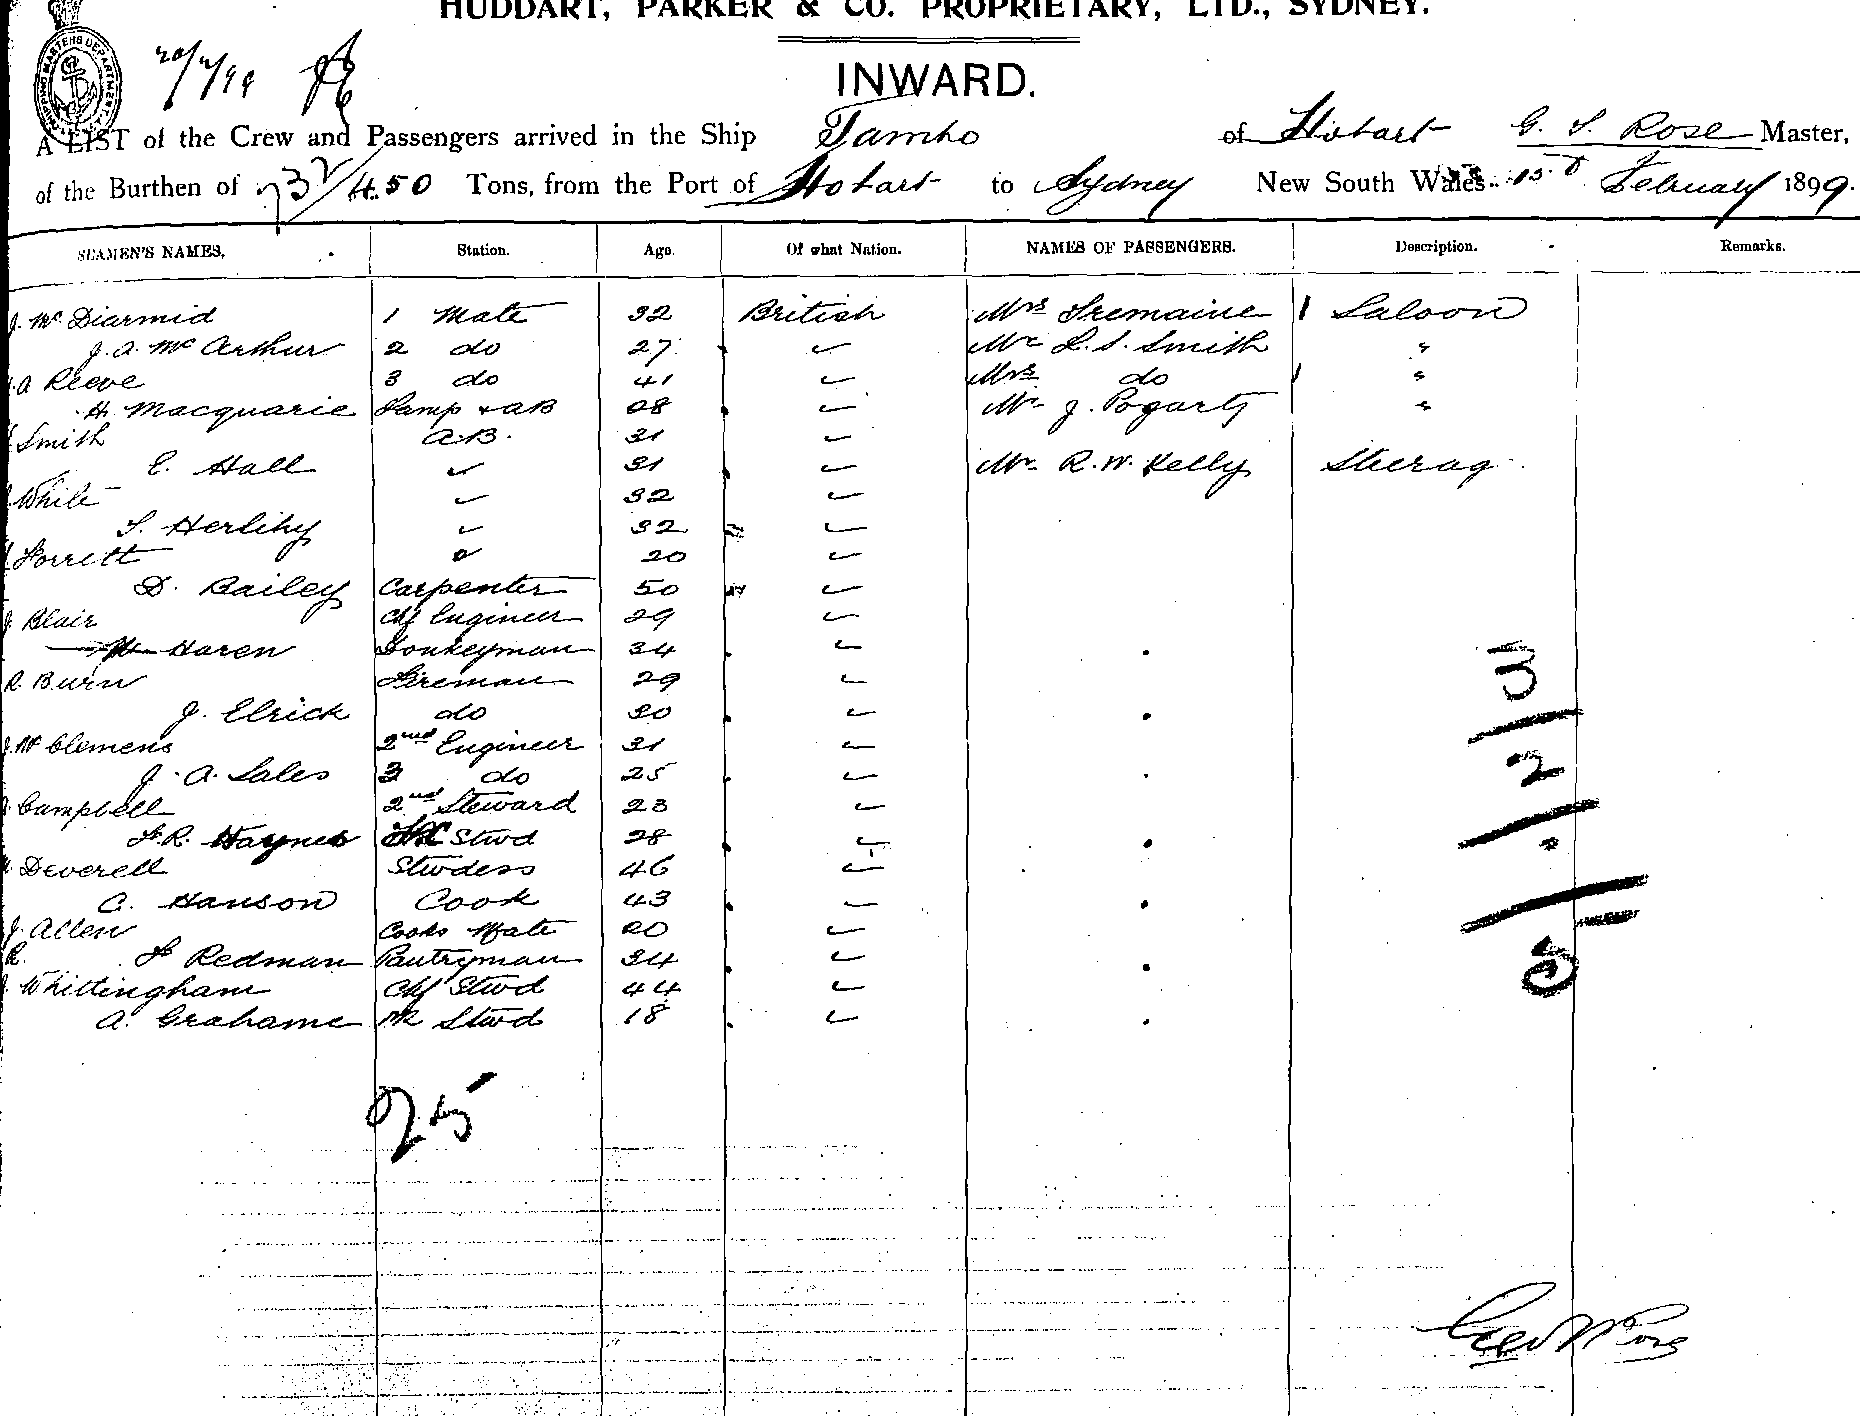 HUDDART, PARKER & CO. PROPRIETARY, LTD., SYDNEY.
INWARD.
A LIST of the Crew and Passengers arrived in the Ship Tambo of Hobart G. S. Rose Master,
of the Burthen of 732/450 Tons, from the Port of Hobart to Sydney New South Wales 15th February 1899.
SEAMEN'S NAMES. Station. Age. Of what Nation. NAMES OF PASSENGERS. Description. Remarks.
J. Mc Diarmid 1 Mate 32 British Mrs Tremaine 1 Saloon
J. A. Mc Arthur 2 do 27 Mr L. S. Smith "
A Reeve 3 do 41 Mrs do "
H. Macquarie Lamp & AB 28 Mr J. Fogarty "
Smith A.B. 31
E. Hall 31 Mr R. W. Kelly Steerag
White 32
S. Herlihy 32
20
D. Bailey Carpenter 50
J. Blair Chf Engineer 29
Haren Donkeyman 34
R. Burn Fireman 29
J. Elrick do 30
J. Mc Clemens 2nd Engineer 31
J. A. Sales 3 do 25
Campbell 2nd Steward 23
F. R. Haynes Stwd 28
Deverell Stwdess 46
C. Hanson Cook 43
J. Allen Cooks Mate 20
F Redman Pantryman 34
Whittingham Chf Stwd 44
A. Grahame Stwd 18